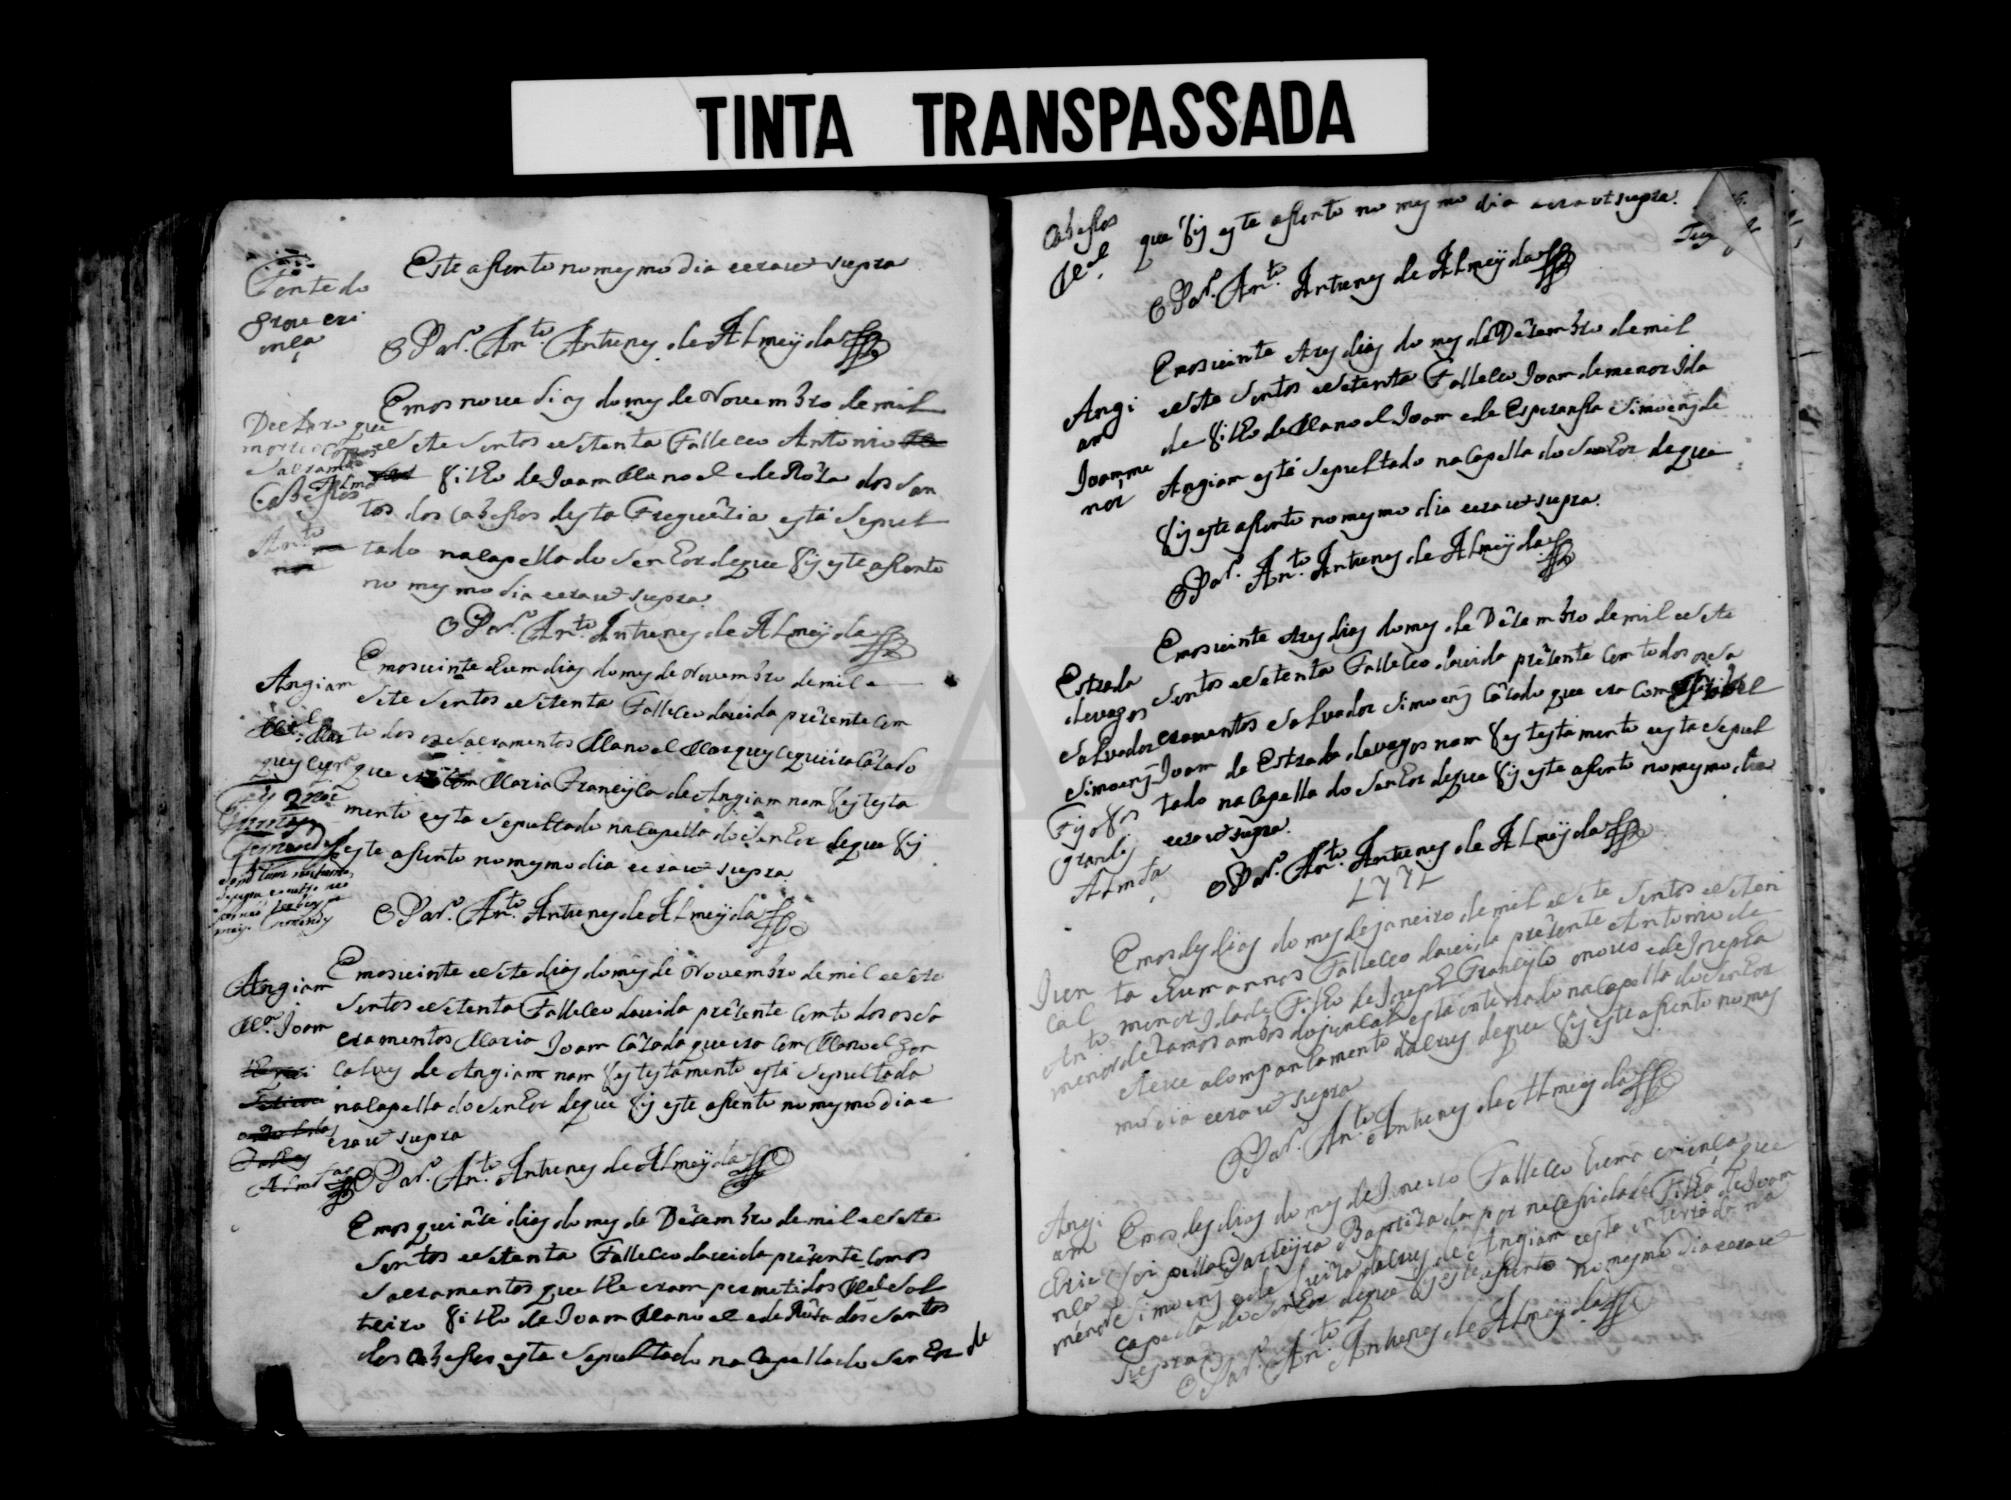 TINTA TRANSPASSADA
Fonte do
Grou cri
ansa
Este asento no mesmo dia eera ut supra
O Par.º Ant.º Antunes de Almeyda
Declaro que
morreo
Sacram.tos
Cabessos
Ant.º
Emos nove dias do mes de Novembro de mil
esete sentos esetenta Falleceo Antonio
filho de Joam Manoel ede Roza dos San
tos dos Cabessos desta Freguezia está sepul
tado na Capella do Senhor de que fis este asento
no mesmo dia eera ut supra
O Par.º Ant.º Antunes de Almeyda
Angiam
Emos vinte ehum dias do mes de Novembro de mil e
sete sentos esetenta Falleceo davida prezente Com
todos os Sacramentos Manoel Marques Cazado
que era Com Maria Francisca de Angiam nam fes testa
mento esta sepultado na Capella do Senhor de que fis
este asento no mesmo dia eera ut supra
O Par.º Ant.º Antunes de Almeyda
Angiam
M.ª Joam
Emos vinte esete dias do mes de Novembro de mil esete
sentos esetenta Falleceo davida prezente Com todos os Sa
cramentos Maria Joam Cazada que era Com Manoel Gon
calves de Angiam nam fes testamento está sepultada
na Capella do Senhor de que fis este asento no mesmo dia e
era ut supra
O Par.º Ant.º Antunes de Almeyda
Emos quinze dias do mes de Dezembro de mil esete
sentos esetenta Falleceo davida prezente Com os
Sacramentos que lhe eram permetidos Mel Sol
teiro filho de Joam Manoel ede Roza dos Santos
dos Cabessos esta Sepultado na Capella do Senhor de
Cabessos
Mel
que fis este asento no mesmo dia eera ut supra
O Par.º Ant.º Antunes de Almeyda
Angi
am
Joam me
nor
Emos vinte etres dias do mes de Dezembro de mil
esete sentos esetenta Falleceo Joam de menor Ida
de filho de Manoel Joam ede Esperansa Simoens de
Angiam está sepultado na Capella do Senhor de que
fis este asento no mesmo dia eera ut supra
O Par.º Ant.º Antunes de Almeyda
Estrada
devagos
Salvador
Simoens
Emos vinte etres dias do mes de Dezembro de mil esete
sentos esetenta Falleceo davida prezente Com todos os Sa
cramentos Salvador Simoens Cazado que era Com
Joam da Estrada devagos nam fes testamento esta sepul
tado na Capella do Senhor de que fis este asento no mesmo dia
eera ut supra
O Par.º Ant.º Antunes de Almeyda
1771
Jun
cal
Ant.º
menor
Emos des dias do mes de janeiro de mil esete sentos eseten
ta ehum annos Falleceo davida prezente Antonio de
menor Idade Filho de Joseph Francisco ede Josepha
de Ramos ambos do juncal esta enterrado na Capella do Senhor
eteve acompanhamento da Crus de que fis este asento no mes
mo dia eera ut supra
O Par.º Ant.º Antunes de Almeyda
Angi
am
Crie
nca
menor
Emos des dias do mes de Janeiro Falleceo huma criença que
foi pella Parteyra Baptizada por necessidade Filha de Joam
Simoens ede Luiza da Crus de Angiam esta enterrada na
Capella do Senhor de que fis este asento no mesmo dia eera ut
supra
O Par.º Ant.º Antunes de Almeyda